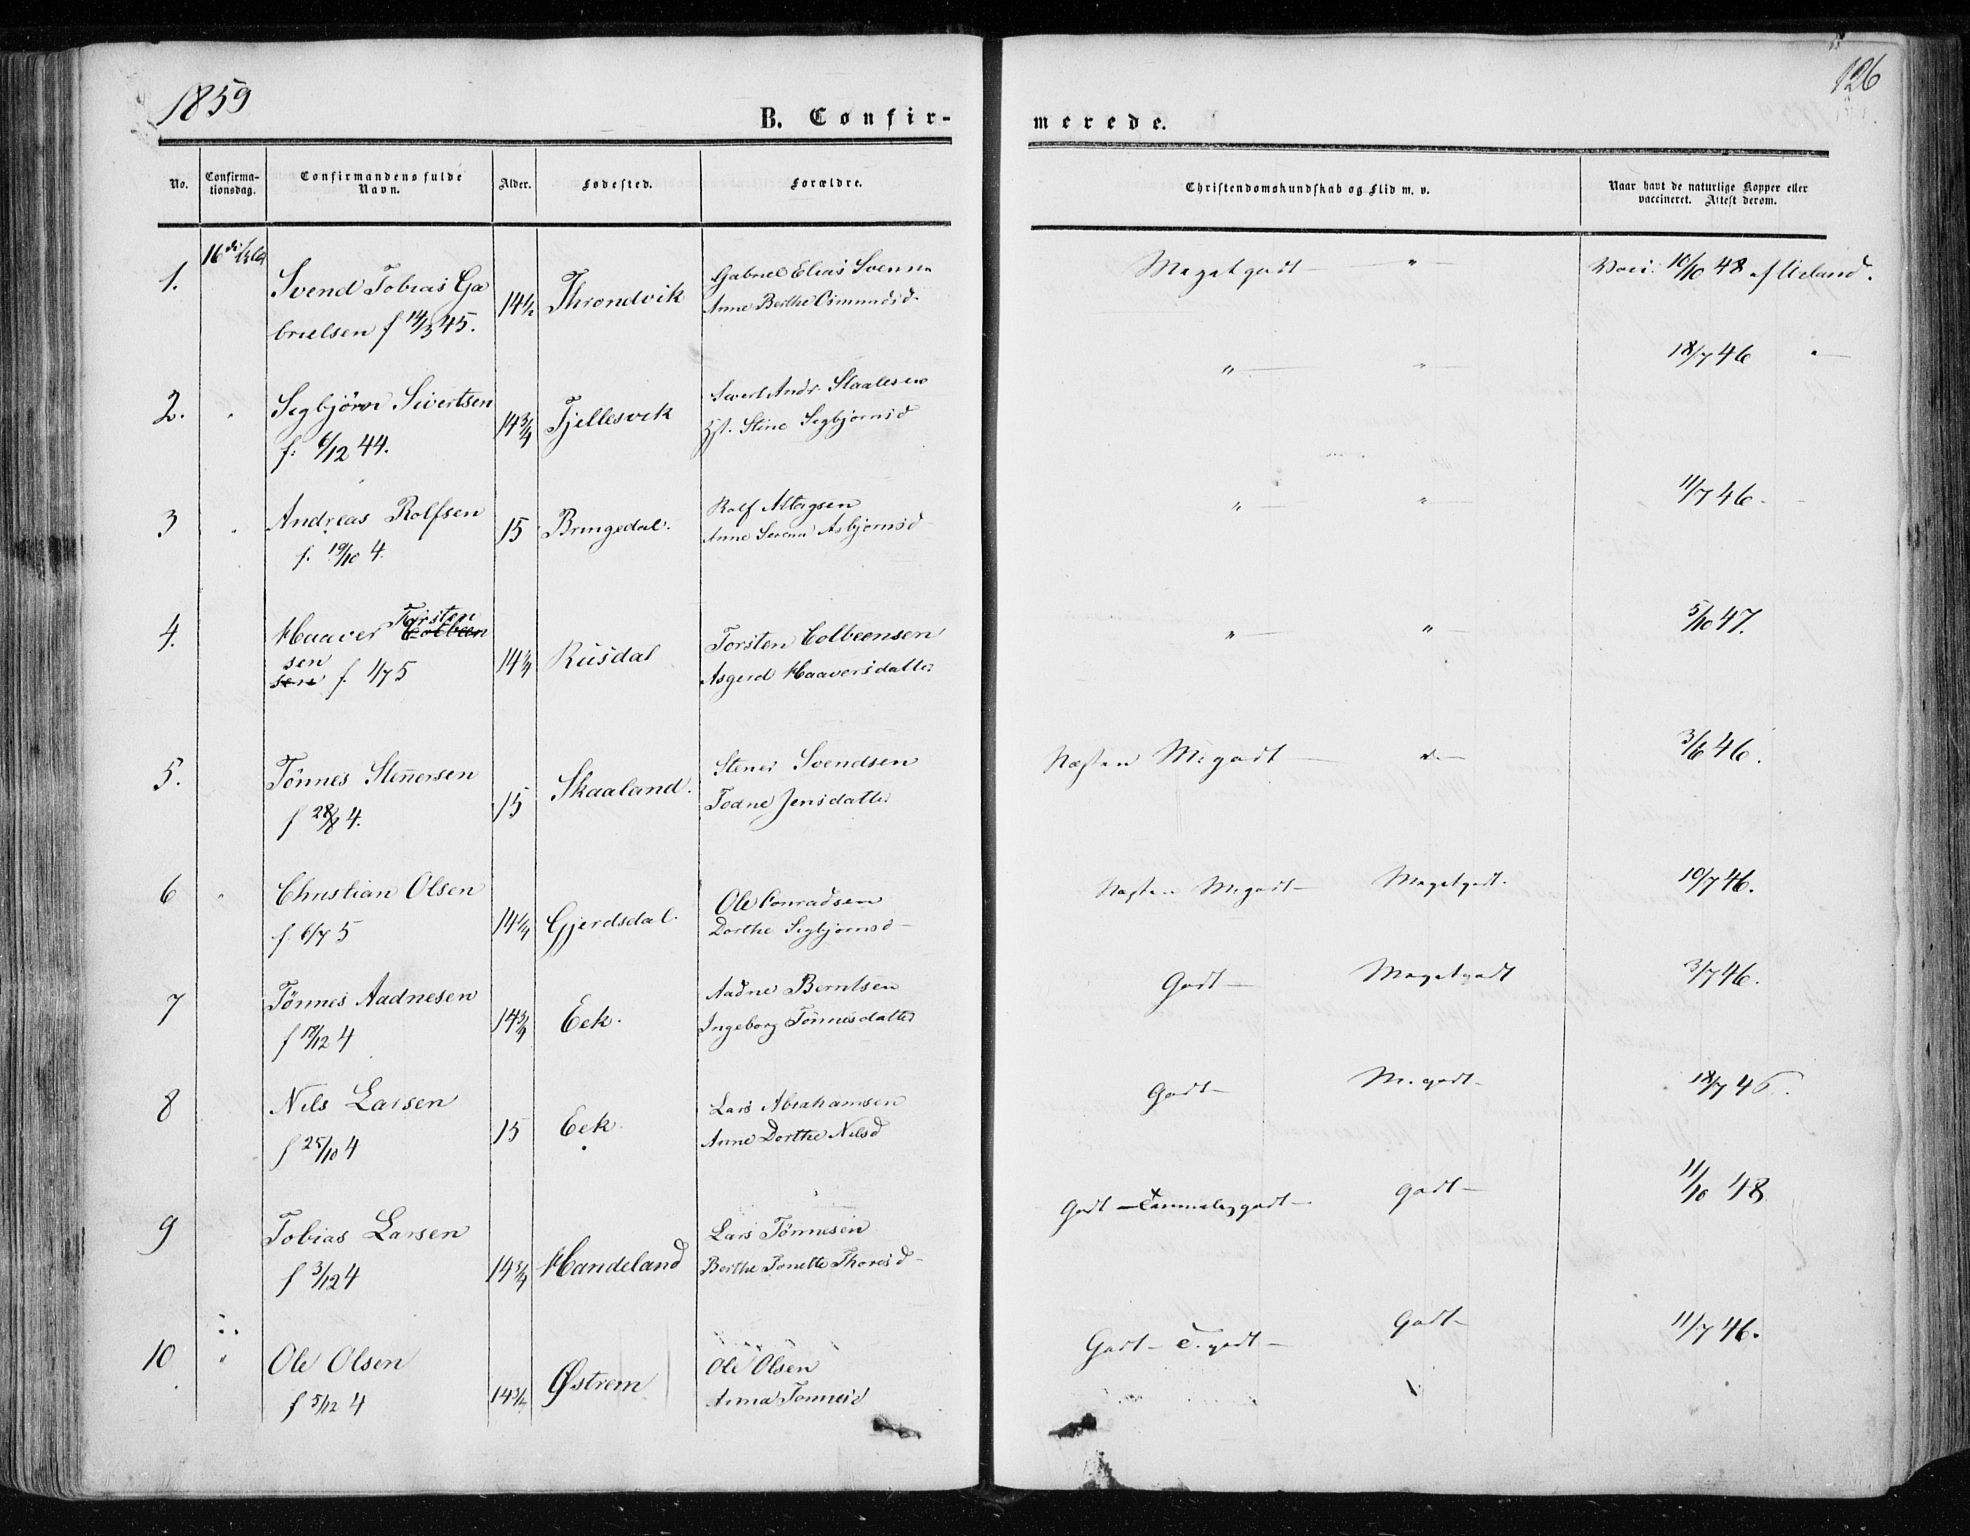 1859
126
B. Confir-
merede.
No.
Confirma-
tionsdag.
Confirmandens fulde
Navn.
Alder.
Fødested.
Forældre.
Christendomskundskab og Flid m. v.
Naar havt de naturlige Kopper eller
vaccineret. Attest derom.
1. Svend Tobias Ga
brielsen f 14/3 45. 14½ Throndvik
Gabriel Elias Svenn
Anne Berthe Osmundsd.
Megetgodt — " Vacc. 10/10 48 af Ueland.
2. " Sigbjörn Sivertsen
f. 6/12 44. 14¾ Fjellesvik
Sivert Andr. Staalesen
Stine Sigbjørnsd
" — " — 18/7 46 " —
3 " Andreas Rolfsen
f. 19/10 4. 15 Bringedal.
Rolf
Anne Serene Asbjørnsd
" — " — 11/7 46. —
4. Haaver Torsten
Colbeen
sen
sen f. 1/7 5 14¼ Rusdal
Torsten Colbeensen
Asgerd Haaversdatter
" — " — 5/10 47.
5. Tönnes Stennersen
f 28/8 4. 15 Skaaland.
Stener Svendsen
Todne Jensdatter
Næsten M. godt — " — 3/6 46.
6 " Christian Olsen
f. 6/7 5 14¼ Gjerdsdal.
Ole Conradsen
Dorthe Sigbjørnsd —
Næsten M. godt — Megetgodt. 10/7 46.
7 Tönnes Aadnesen
f 17/12 4 14¾ Eek.
Aadne Berntsen
Ingeborg Tönnesdatter
Godt — Megetgodt 3/7 46.
8 Nils Larsen
f 25/10 4 15 Eek.
Lars Abrahamsen
Anne Dorthe Nilsd
Godt — M. godt — 18/7 46.
9 Tobias Larsen
f 3/12 4 14¾ Handeland
Lars Tönnesen
Berthe Tonette Thoresd —
Godt — Temmelig godt — godt — 11/10 48.
10 " Ole Olsen
f 5/12 4 14¾ Østrem
Ole Olsen
Anna Tönnesd
Godt — T. godt — Godt — 11/7 46.